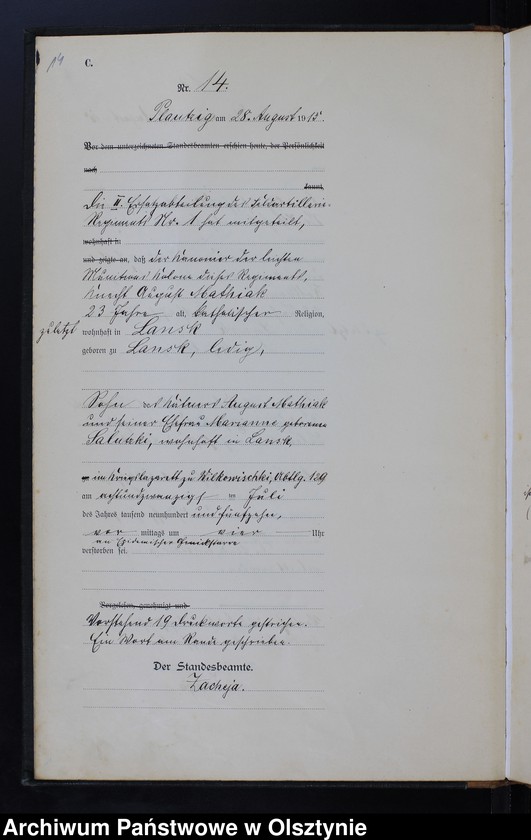 14
C.
Nr. 14.
Plautzig am 28. August 1915.
Vor dem unterzeichneten Standesbeamten erschien heute, der Persönlichkeit
nach
kannt,
Die II. Ersatzabteilung des Feldartillerie-
Regiments Nr. 1 hat mitgeteilt,
wohnhaft in
und zeigte an, daß der Kanonier der leichten
Munitions Kolone dieses Regiments,
Knecht August Mathiak
23 Jahre alt, katholischer Religion,
zuletzt wohnhaft in Lansk
geboren zu Lansk, ledig,
Sohn des Kätners August Mathiak
und seiner Ehefrau Marianne geborenen
wohnhaft in Lansk
im Kriegslazarett zu Wilkowischki, Abtlg. 129
am achtundzwanzigsten Juli
des Jahres tausend neunhundert und fünfzehn,
vor mittags um vier Uhr
an Epidemischer Genickstarre
verstorben sei.
Vorgelesen, genehmigt und
Vorstehend 19 Druckworte gestrichen.
Ein Wort am Rande geschrieben.
Der Standesbeamte.
Zacheja.
Archiwum Państwowe w Olsztynie